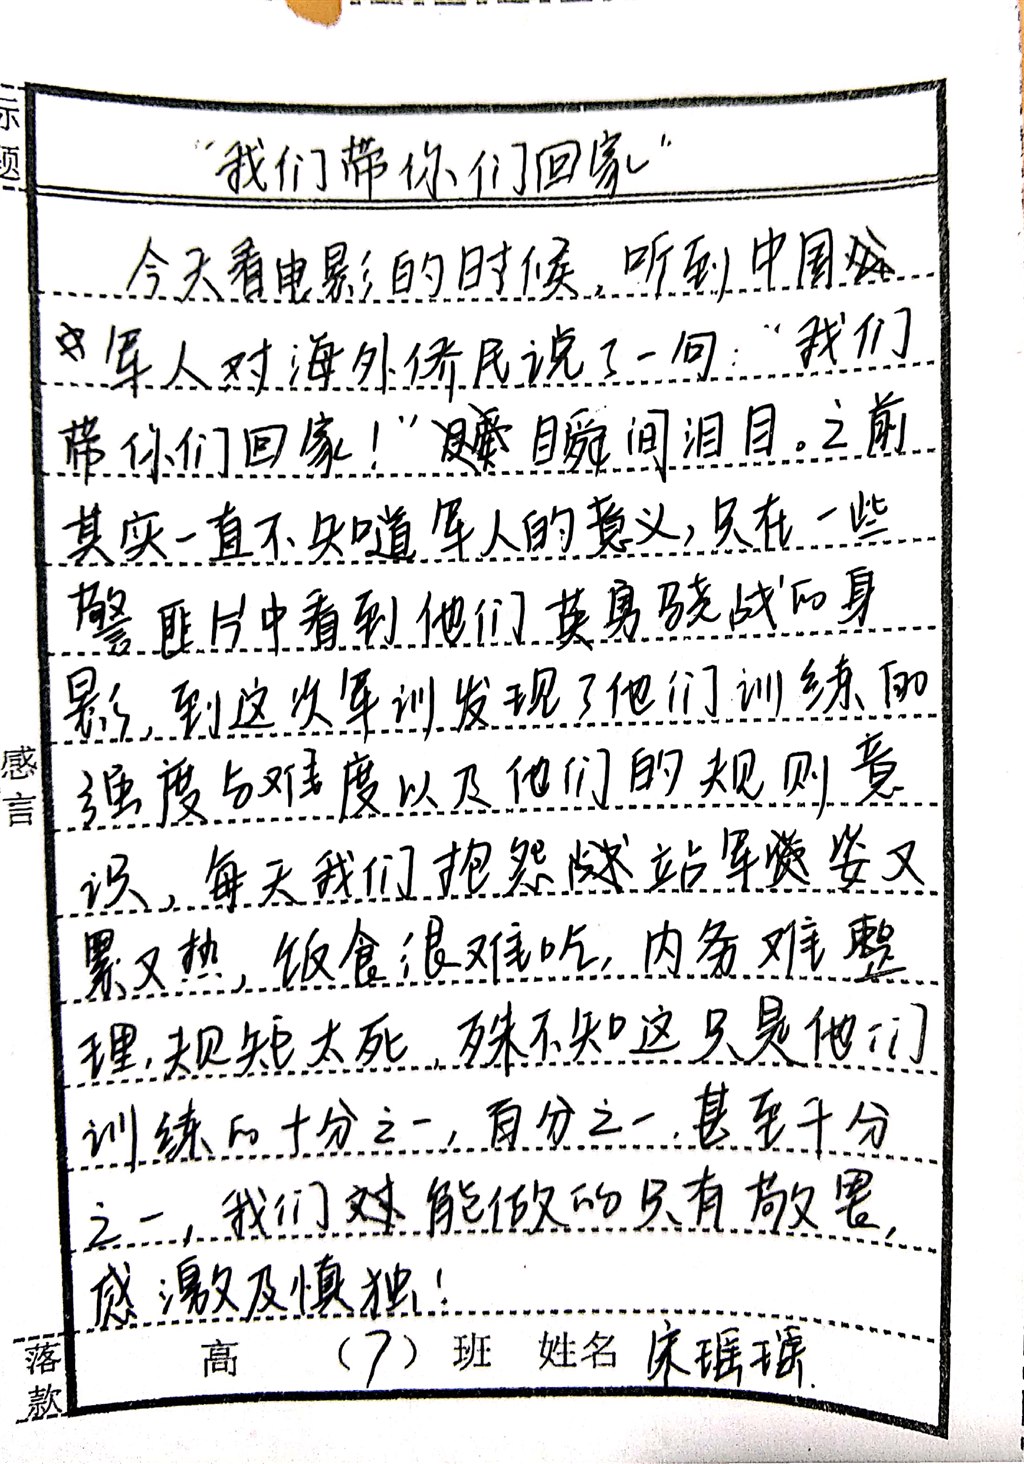 标题
“我们带你们回家”
今天看电影的时候，听到中国
军人对海外侨民说了一句：“我们
带你们回家！”瞬间泪目。之前
其实一直不知道军人的意义，只在一些
警匪片中看到他们英勇骁战的身
影，到这次军训发现了他们训练的
强度与难度以及他们的规则意
识，每天我们抱怨站军姿又
累又热，饭食很难吃，内务难整
理，规矩太死，殊不知这只是他们
训练的十分之一，百分之一，甚至千分
之一，我们能做的只有敬畏，
感激及慎独！
感言
落款 高 （7）班 姓名 宋瑶瑶